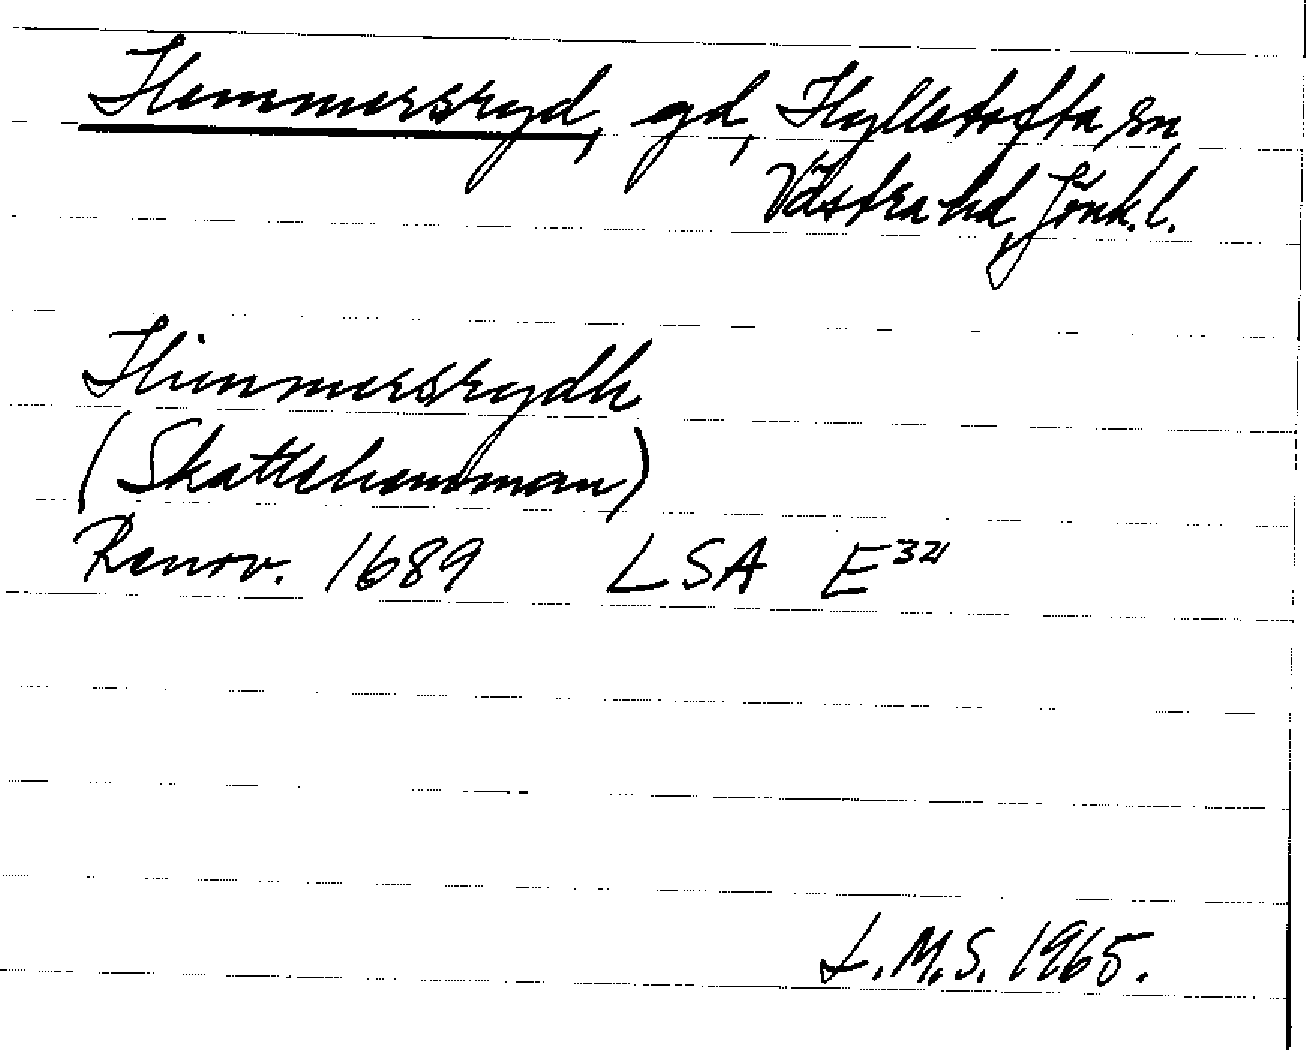 Hemmersryd, gd, Hylletofta sn,
Västra hd, Jönk. l.
Himmersrydh
(Skattehemman)
Renov. 1689 LSA E³²¹
L.M.S. 1965.